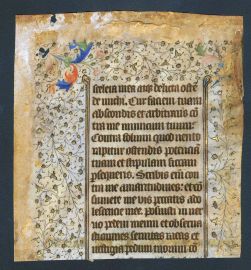 scelera mea atqz delicta oste
de michi. Cur faciem tuam
abscondis et arbitraris
me inimicum tuum
Contra folium quod vento
rapitur ostendis potenciam
tuam et stipulam siccam
psequeris. Scribis eni con
tra me amaritudines: et co
sumere me vis pctatis ado
lescencie mee. Posuisti in ner
vo pedem meum et obser
semitas meas et
vestigia pedum meorum co